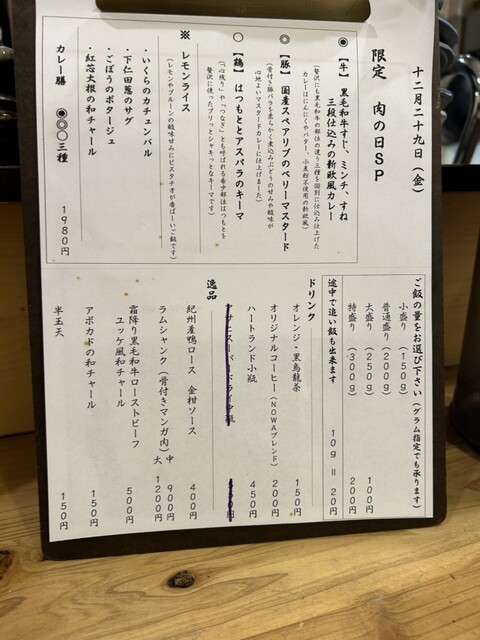 十二月二十九日（金）
限定　肉の日SP
◉【牛】黒毛和牛すじ、ミンチ、すね
三段仕込みの新欧風カレー
（贅沢にも黒毛和牛の部位の違う三種を個別に仕込み仕上げた
カレーはにんにくやバター、小麦粉不使用の新欧風）
◎【豚】国産スペアリブのベリーマスタード
（骨付き豚バラを柔らかく煮込みぶどうの甘みや酸味が
心地よいマスタードカレーに仕上げました）
○【鶏】はつもととアスパラのキーマ
（「心残り」や「つなぎ」とも呼ばれる希少部位はつもとを
贅沢に使ったプリっとシャキっとなキーマです）
※レモンライス
（レモンやプルーンの酸味甘みにピスタチオが香ばしいご飯です）
・いくらのカチュンバル
・下仁田葱のサグ
・ごぼうのポタージュ
・紅芯大根の和チャール
カレー膳　◉◎○三種　1980円
ご飯の量をお選び下さい（グラム指定でも承ります）
小盛り（150g）
普通盛り（200g）
大盛り（250g）　100円
特盛り（300g）　200円
途中で追い飯も出来ます　10g＝20円
ドリンク
オレンジ・黒烏龍茶　150円
オリジナルコーヒー（NOWAブレンド）　200円
ハートランド小瓶　450円
逸品
紀州産鴨ロース　金柑ソース　400円
ラムシャンク（骨付きマンガ肉）中　900円
大　1200円
霜降り黒毛和牛ローストビーフ
ユッケ風和チャール　500円
アボカドの和チャール　150円
半玉天　150円